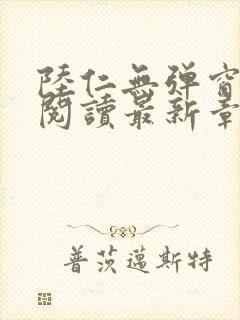 陸仁無彈窗
閱讀最新章
普茨邁斯特